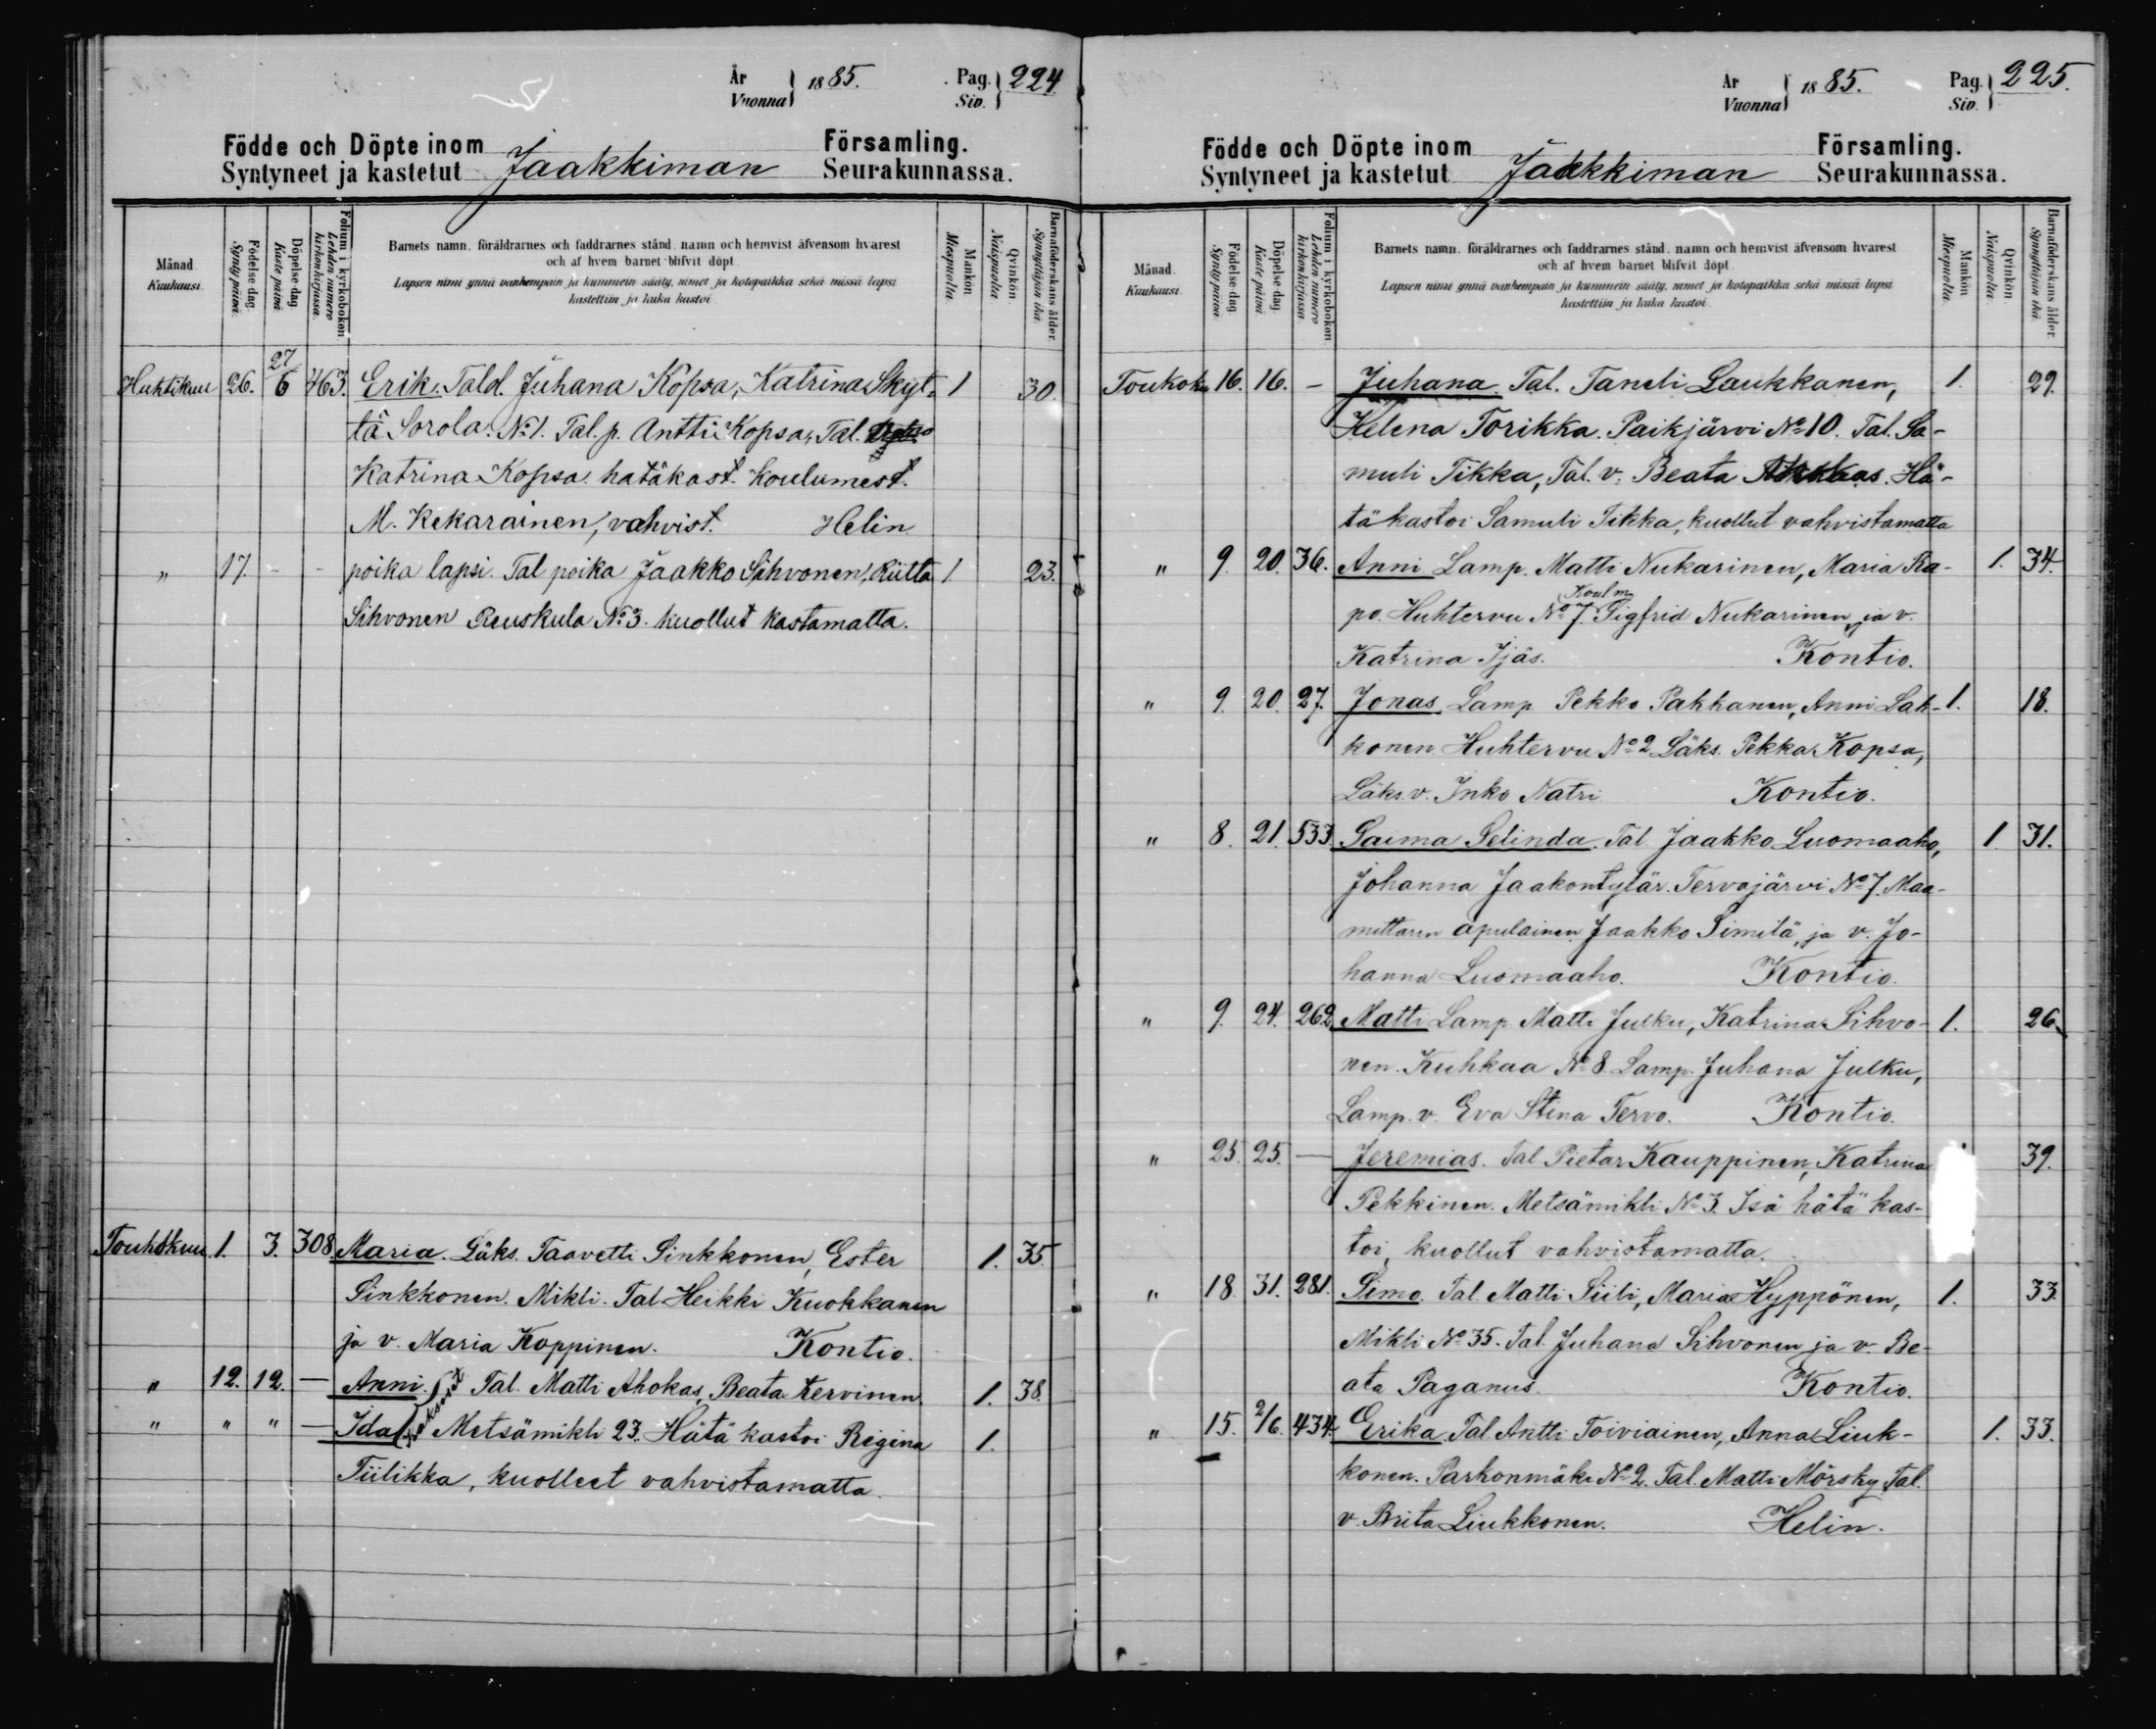 År Vuonna } 1885. Pag. Siv. } 224
Födde och Döpte inom Jaakkiman Församling.
Syntyneet ja kastetut Seurakunnassa.
Månad Kuukausi. Födelse dag Synty päivä. Döpelse dag Kaste päivä Folium i kyrkobokon Lehden numero kirkon kirjassa. Barnets namn, föräldrarnes och faddrarnes stånd, namn och hemvist äfvensom hvarest Mankön Miespuolta. Qvinkön Naispuolta Barnaföderskans ålder. Synnyttäjän ikä.
och af hvem barnet blifvit döpt.
Lapsen nimi ynnä vanhempain ja kummein sääty, nimet ja kotopaikka sekä missä lapsi
kastettiin ja kuka kastoi.
Huhtikuu 26. 27/6 463. Erik. Tald. Juhana Kopsa, Katrina Skyt- 1 30.
tä Sorola. No 1. Tal. p. Antti Kopsa, Tal.
Katrina Kopsa. hätäkast. Koulumest.
M. Kekarainen, vahvist. Helin
" 17. - - poika lapsi. Tal poika Jaakko Sihvonen, Riitta 1 23.
Sihvonen Reuskula No 3. kuollut kastamatta.
Toukokuu 1. 3. 308 Maria. Läks. Taavetti Sinkkonen, Ester 1. 35.
Sinkkonen. Mikli. Tal Heikki Kuokkanen
ja v. Maria Koppinen. Kontio.
" 12. 12. — Anni. Tal. Matti Ahokas, Beata Kervinen. 1. 38.
" " " — Ida kaksoset Metsämikli 23. Hätä kastoi Regina 1.
Tiilikka, kuolleet vahvistamatta.
År Vuonna } 1885. Pag. Siv. } 225.
Födde och Döpte inom Jaakkiman Församling.
Syntyneet ja kastetut Seurakunnassa.
Månad. Kuukausi. Födelse dag Synty päivä. Döpelse dag Kaste päivä Folium i kyrkobokon Lehden numero kirkon kirjassa. Barnets namn, föräldrarnes och faddrarnes stånd, namn och hemvist äfvensom hvarest Mankön Miespuolta. Qvinkön Naispuolta. Barnaföderskans ålder. Synnyttäjän ikä.
och af hvem barnet blifvit döpt.
Lapsen nimi ynnä vanhempain ja kummein sääty, nimet ja kotopaikka sekä missä lapsi
kastettiin ja kuka kastoi.
Toukoku 16. 16. - Juhana. Tal. Taneli Laukkanen, 1. 29.
Helena Torikka. Paikjärvi No 10. Tal. Sa-
muli Tikka, Tal. v. Beata Hä-
tä kastoi Samuli Tikka, kuollut vahvistamatta
" 9. 20. 36. Anni Lamp. Matti Nukarinen, Maria Ra- 1. 34.
po. Huhtervu No 7. Koulm Sigfrid Nukarinen ja v.
Katrina Ijäs. Kontio.
" 9. 20. 27. Jonas. Lamp Pekko Pakkanen, Anni Lak- 1. 18.
konen Huhtervu No 2 Läks. Pekka Kopsa,
Läks. v. Inko Natri Kontio.
" 8. 21. 533. Saima Selinda. Tal. Jaakko Luomaaho, 1. 31.
Johanna Jaakontytär. Tervajärvi No 7. Maa-
mittarin apulainen Jaakko Similä ja v. Jo-
hanna Luomaaho. Kontio.
" 9. 24. 262 Matti Lamp Matti Julku, Katrina Sihvo- 1. 26.
nen. Kuhkaa No 8. Lamp. Juhana Julku,
Lamp. v. Eva Stina Tervo. Kontio.
" 25. 25. — Jeremias. Tal. Pietar Kauppinen, Katrina 39.
Pekkinen. Metsämikli No 3. Isä hätä kas-
toi, kuollut vahvistamatta.
" 18. 31. 281. Simo. Tal. Matti Siili, Maria Hyppönen, 1. 33.
Mikli No 35. Tal. Juhana Sihvonen ja v. Be-
ata Paganus. Kontio.
" 15. 2/6. 434. Erika Tal. Antti Toiviainen, Anna Liuk- 1. 33.
konen. Parkonmäki No 2. Tal. Matti Mörsky, Tal.
v. Brita Liukkonen. Helin.